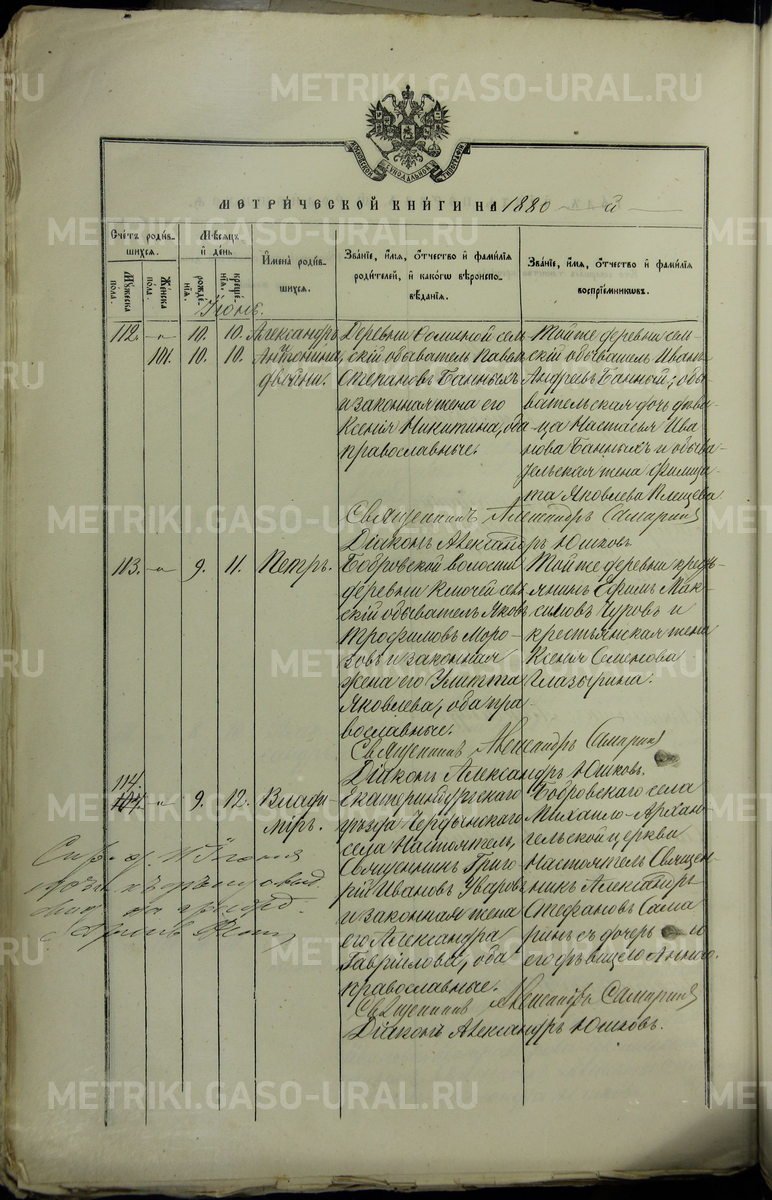 МОСКОВСКОЙ СѴНОДАЛЬНОЙ ТИПОГРАФІИ
МЕТРИЧЕСКОЙ КНИГИ НА 1880 й
Счетъ родив-
шихся.
Мужеска пола.
Женска пола.
Мѣсяцъ
и день
рожде-
нія.
креще-
нія.
Имена родив-
шихся.
Званіе, имя, отчество и фамилія
родителей, и какогѡ вѣроиспо-
вѣданія.
Званіе, имя, отчество и фамилія
воспріемниковъ.
Іюнь.
112. -„- 10. 10. Александръ
101. 10. 10. Антонина,
двойни.
Деревни сель-
скій обыватель Павелъ
Степановъ Банныхъ
и законная жена его
Ксенія Никитина, оба
православные.
Той же деревни сель-
скій обыватель Иванъ
Андреевъ Банный; обы-
вательская дочь дѣви-
ца Настасья Ива
нова Банныхъ и обыва-
тельская жена Филица-
та Яковлева Клещева
Священникъ Александръ Самаринъ
Діаконъ Александръ Юшковъ.
113. -„- 9. 11. Петръ.
Бобровской волости
деревни Ключей сель-
скій обыватель Яковъ
Трофимовъ Моро-
зовъ и законная
жена его Улитта
Яковлева, оба пра
вославные.
Той же деревни кресть-
янинъ Ефимъ Мак-
симовъ Чуровъ и
крестьянская жена
Ксенія Семенова
Глазырина.
Священникъ Александръ Самаринъ
Діаконъ Александръ Юшковъ.
114. -„- 9. 12. Влади-
міръ.
Екатеринбургскаго
уѣзда Чердынскаго
села Настоятель,
Священникъ Григо-
рій Ивановъ Уваровъ
и законная жена
его Александра
Гавріилова, оба
православные.
Бобровскаго села
Михаило-Архан-
гельской церкви
Настоятель Священ-
никъ Александръ
Стефановъ Сама
ринъ съ дочерью
его дѣвицею Анною.
Священникъ Александръ Самаринъ
Діаконъ Александръ Юшковъ.
METRIKI.GASO-URAL.RU